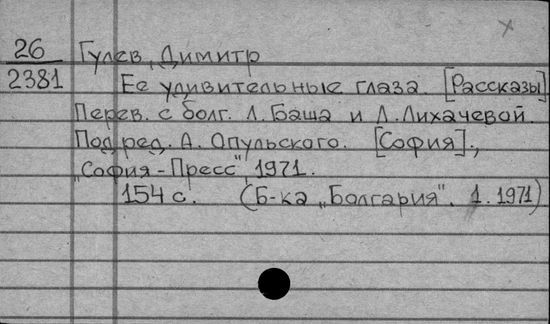 26 Гулев, Димитр
2381 Ее удивительные глаза. [Рассказы]
Перев. с болг. Л. Баша и Л. Лихачевой.
Под ред. А. Опульского. [София].,
"София-Пресс", 1971.
154 с. (Б-ка „Болгария". 1. 1971)